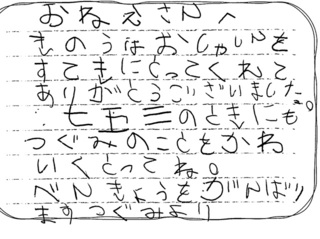 おねえさんへ
きのうはおしゃしんを
すてきにとってくれて
ありがとうございました。
七五三のときにも
つぐみのことをかわ
いくとってね。
べんきょうをがんばり
ますつぐみより